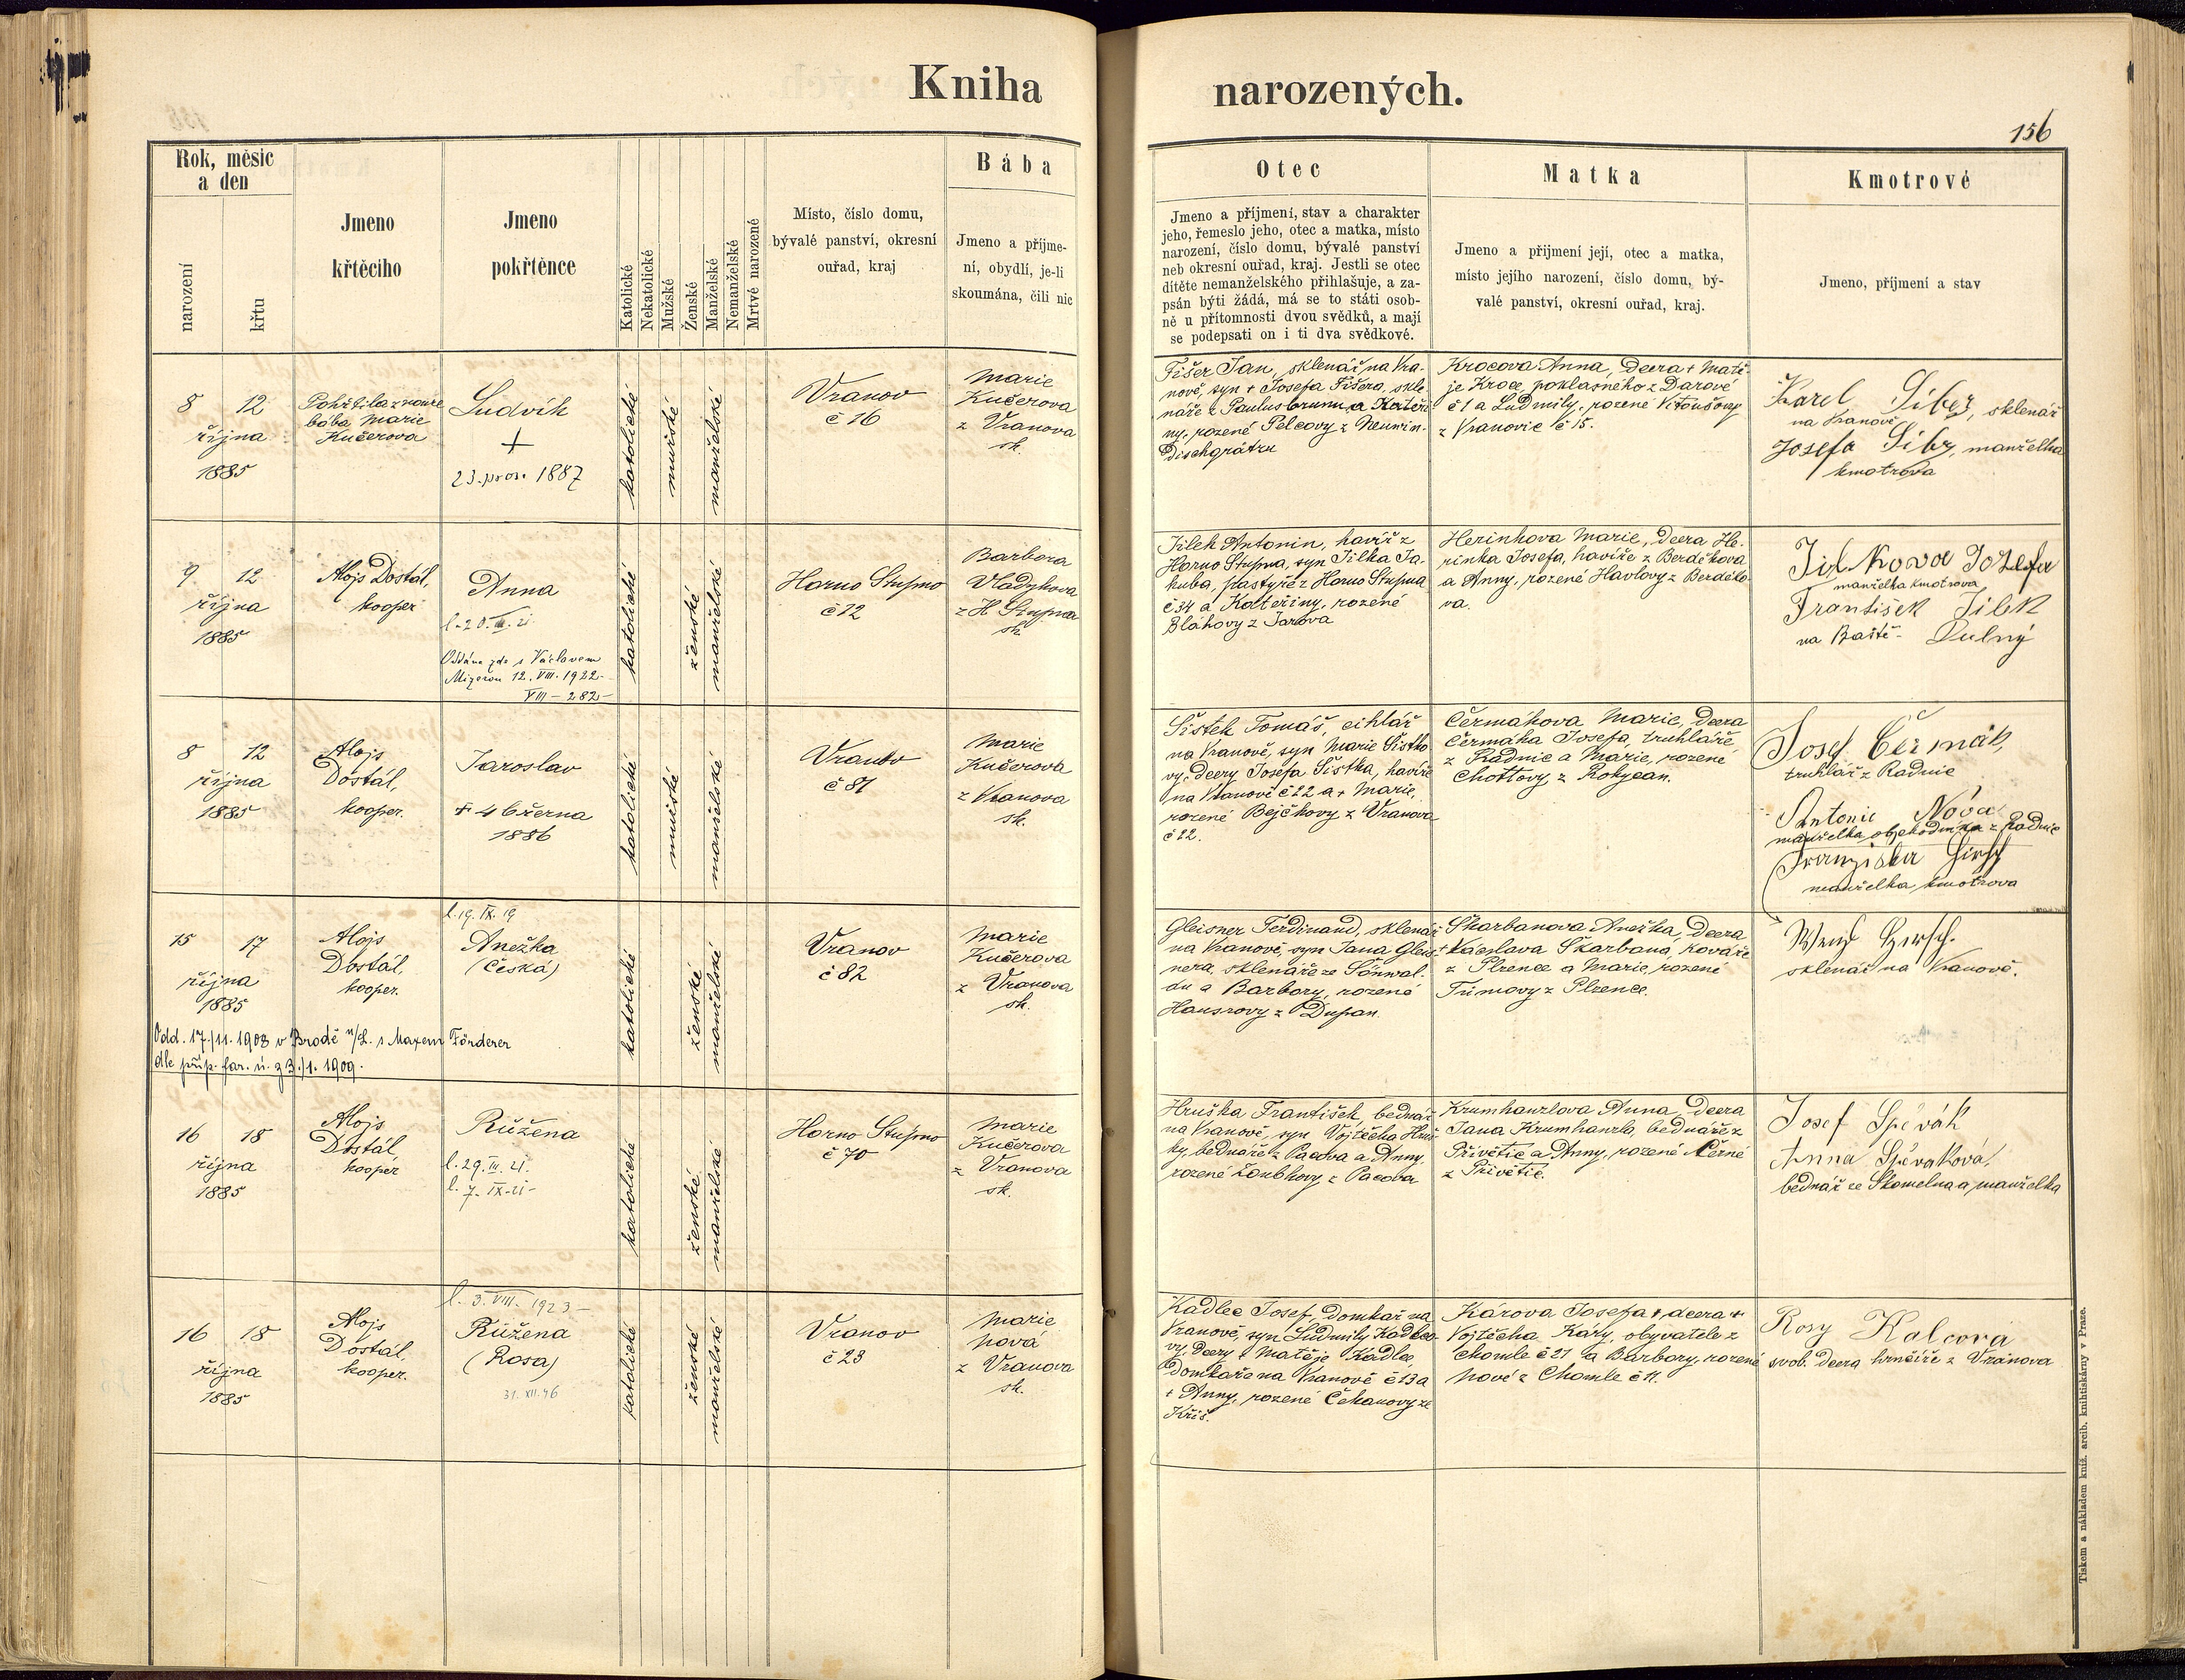 Kniha narozených.
156
Rok, měsíc
a den
narození
křtu
Jmeno
křtěcího
Jmeno
pokřtěnce
Katolické
Nekatolické
Mužské
Ženské
Manželské
Nemanželské
Mrtvé narozené
Místo, číslo domu,
bývalé panství, okresní
ouřad, kraj
Bába
Jmeno a příjme-
ní, obydlí, je-li
skoumána, čili nic
Otec
Jmeno a příjmení, stav a charakter
jeho, řemeslo jeho, otec a matka, místo
narození, číslo domu, bývalé panství
neb okresní ouřad, kraj. Jestli se otec
dítěte nemanželského přihlašuje, a za-
psán býti žádá, má se to státi osob-
ně u přítomnosti dvou svědků, a mají
se podepsati on i ti dva svědkové.
Matka
Jmeno a přijmení její, otec a matka,
místo jejího narození, číslo domu, bý-
valé panství, okresní ouřad, kraj.
Kmotrové
Jmeno, příjmení a stav
8 12
října
1885
Pokřtila z nouze
bába Marie
Kučerova
Ludvík
+
23. pros. 1887
katolické
mužské
manželské
Vranov
č 16
Marie
Kučerova
z Vranova
sk.
Fišer Jan, sklenář na Vra-
nově, syn + Josefa Fišera, skle-
náře z Paulusbrunu a Kateři-
ny, rozené Pelcovy z Neuwin-
dischgrätzu
Krocova Anna, dcera + Matě-
je Kroce, poklasného z Darové
č 1 a Ludmily, rozené Vitoušovy
z Vranovic č 15.
Karel Siber, sklenář
na Vranově
Josefa Sibr, manželka
kmotrova
9 12
října
1885
Alojs Dostál,
kooper
Anna
l. 20. III. 21.
Oddána zde s Václavem
12. VIII. 1922.
VIII - 282 -
katolické
ženské
manželské
Horno Stupno
č 12
Barbora
Vladykova
z H Stupna
sk.
Jílek Antonin, havíř z
Horno Stupna, syn Jílka Ja-
kuba, pastýře z Horno Stupna
č 34 a Kateřiny, rozené
Bláhovy z Jarova
Herinkova Marie, dcera He-
rinka Josefa, havíře z Berděkova
a Anny, rozené Havlovy z Berděko-
va.
Jílkova Jozefa
manželka kmotrova
František Jílek
na Baště- Dulný
8 12
října
1885
Alojs
Dostál,
kooper.
Jaroslav
+ 4 března
1886
katolické
mužské
manželské
Vranov
č 81
Marie
Kučerova
z Vranova
sk.
Šístek Tomáš, cihlář
na Vranově, syn Marie Šístko-
vy, dcery Josefa Šístka, havíře
na Vranově č 22 a + Marie,
rozené Bejčkovy z Vranova
č 22.
Čermákova Marie, dcera
Čermáka Josefa, truhláře
z Radnic a Marie, rozené
Chottovy, z Rokycan.
Josef Čermák,
truhlář z Radnic
Antonie Nová
manželka obchodníka z Radnic
Franziska Hirsch
manželka kmotrova
15 17
října
1885
Alojs
Dostál,
kooper.
l. 19. IX. 19
Anežka
(Česká)
Odd. 17./11. 1908 v Brodě n/L. s Maxem Förderer
dle příp. far. ú. z 3./1. 1909.
katolické
ženské
manželské
Vranov
č 82
Marie
Kučerova
z Vranova
sk.
Gleisner Ferdinand, sklenář
na Vranově, syn Jana Gleis-
nera, sklenáře ze Sönwal-
du a Barbory, rozené
Hausrovy z Dupan.
Škarbanova Anežka, dcera
+ Václava Škarbana, kováře
z Plzence a Marie, rozené
Tůmovy z Plzence.
Wenzl Hirsch.
sklenář na Vranově.
16 18
října
1885
Alojs
Dostál,
kooper
Růžena
l. 29. III. 21.
l. 7. IX. 21 -
katolické
ženské
manželské
Horno Stupno
č 70
Marie
Kučerova
z Vranova
sk.
Hruška František, bednář
na Vranově, syn Vojtěcha Hruš-
ky, bednáře z Pacova a Anny,
rozené Zoubkovy z Pacova
Krumhanzlova Anna, dcera
Jana Krumhanzla, bednáře z
Přívětic a Anny, rozené Černé
z Přívětic.
Josef Spěvák
Anna Spěvaková,
bednář ze Skomelna a manželka
16 18
října
1885
Alojs
Dostál,
kooper.
l. 3. VIII. 1923 -
Růžena
(Rosa)
31. XII. 46
katolické
ženské
manželské
Vranov
č 23
Marie
Nová
z Vranova
sk.
Kadlec Josef, domkař na
Vranově, syn Ludmily Kadleco-
vy, dcery + Matěje Kadlec,
domkaře na Vranově č 13 a
+ Anny, rozené Čekanovy ze
Kříš.
Károva Josefa +, dcera +
Vojtěcha Káry, obyvatele z
Chomle č 21 a Barbory, rozené
Nové z Chomle č 11.
Rosy Kalcová
svob. dcera hrnčíře z Vranova
Tiskem a nákladem kníž. arcib. knihtiskárny v Praze.